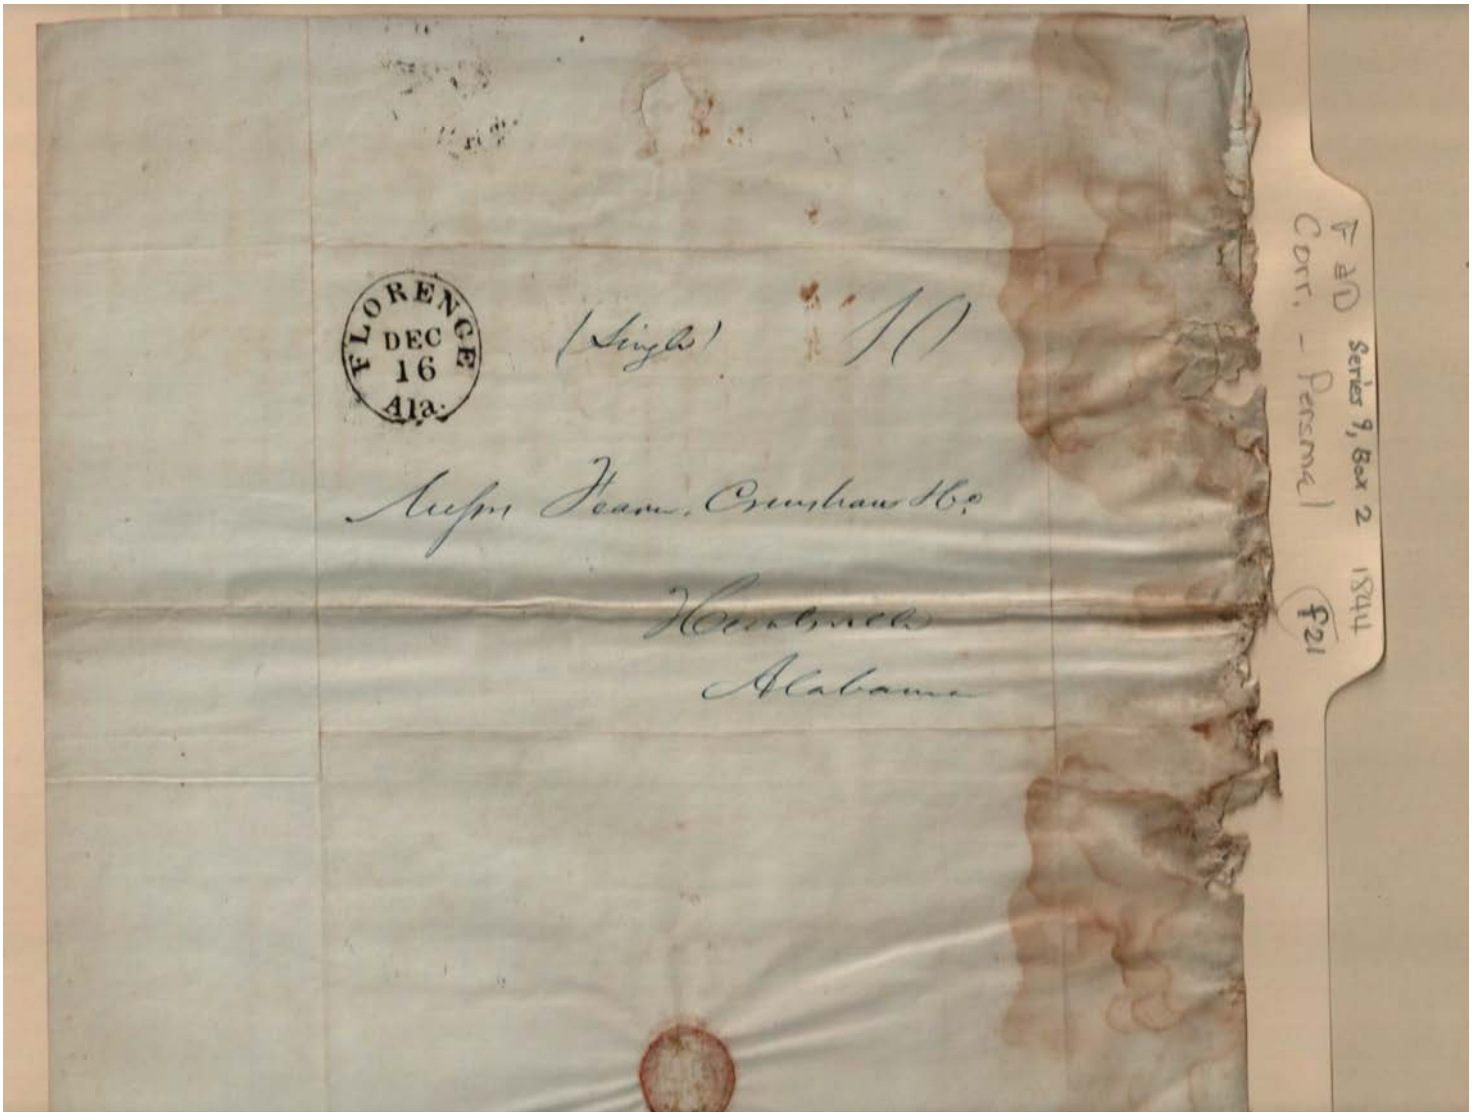 FLORENCE
DEC
16
Ala.
(Single)
10
Messrs Fearn, Crenshaw & Co.
Huntsville
Alabama
F &D Series 9, Box 2 1844
Corr. - Personal f21